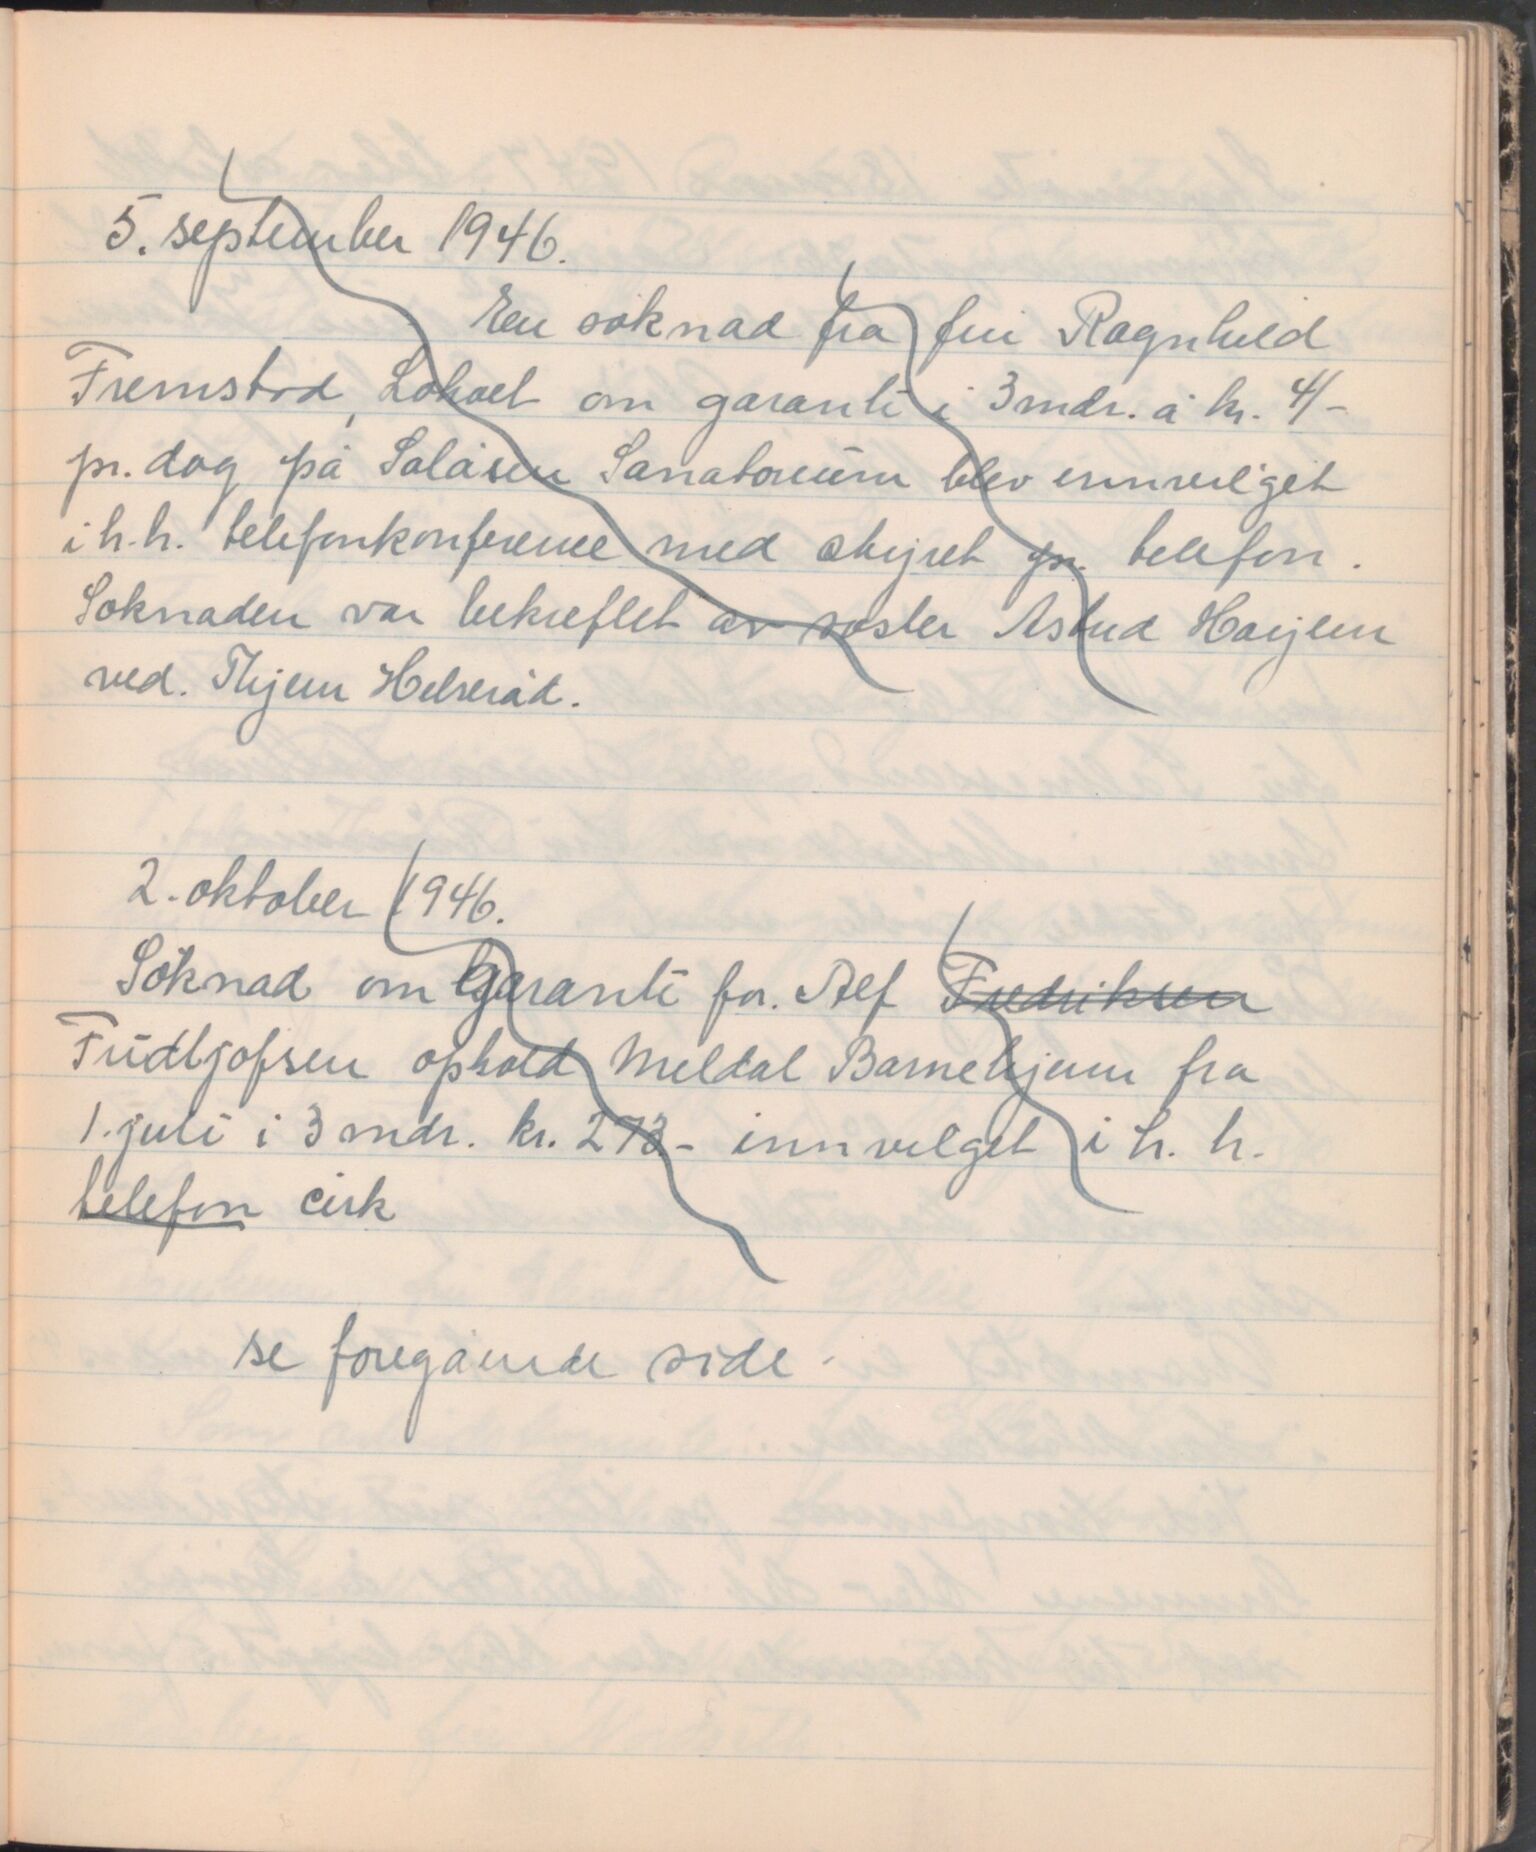 5. september 1946.
En søknad fra fru Ragnhild
Fremstad, Løkaet om garanti i 3 mdr. à kr. 4/-
pr. dag på Solåsen Sanatorium blev ennvilget
i h.h. telefonkonference med styret pr. telefon.
Søknaden var bekreftet av søster Astrid Harjem
ved. Thjem Helseråd.
2. oktober 1946.
Søknad om Garanti for. Alf Fredriksen
Fridtjofsen ophold Meldal Barnehjem fra
1. juli i 3 mdr. kr. 273.- innvilget i h. h.
telefon cirk
se foregående side.